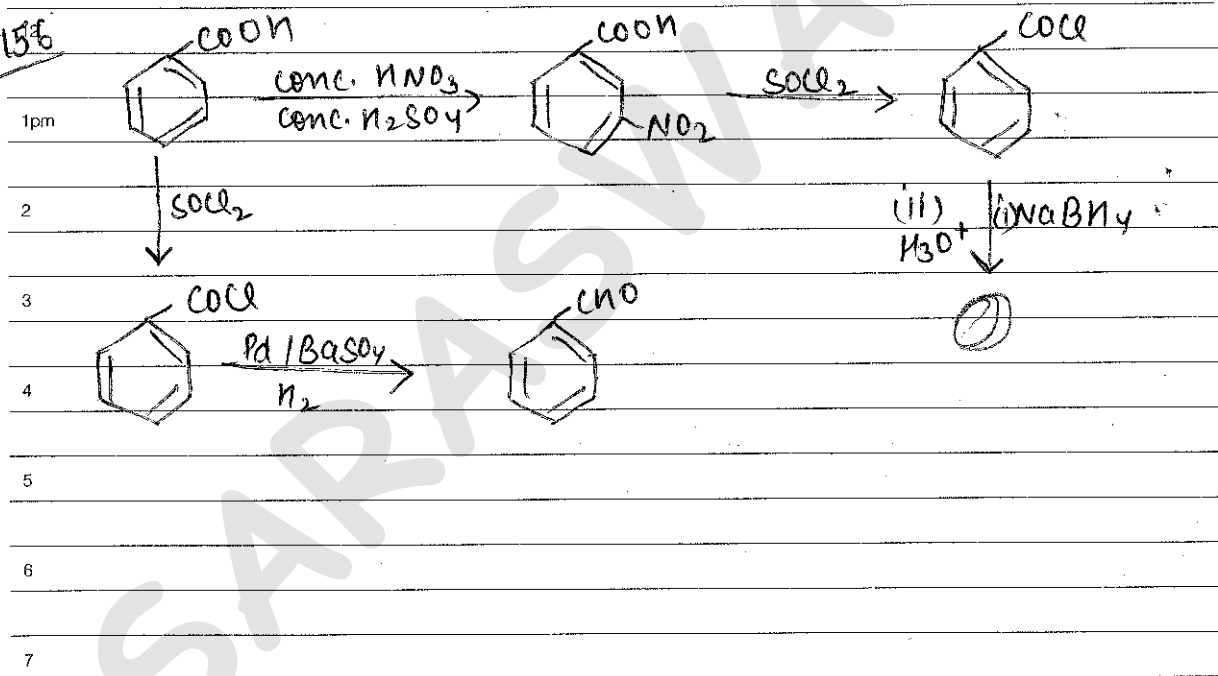 156
COOH
conc. HNO3
conc. H2SO4
COOH
NO2
SOCl2
COCl
1pm
2
SOCl2
(ii) H3O+
(i) NaBH4
3
COCl
Pd/BaSO4
H2
CHO
4
5
6
7
SARASWA